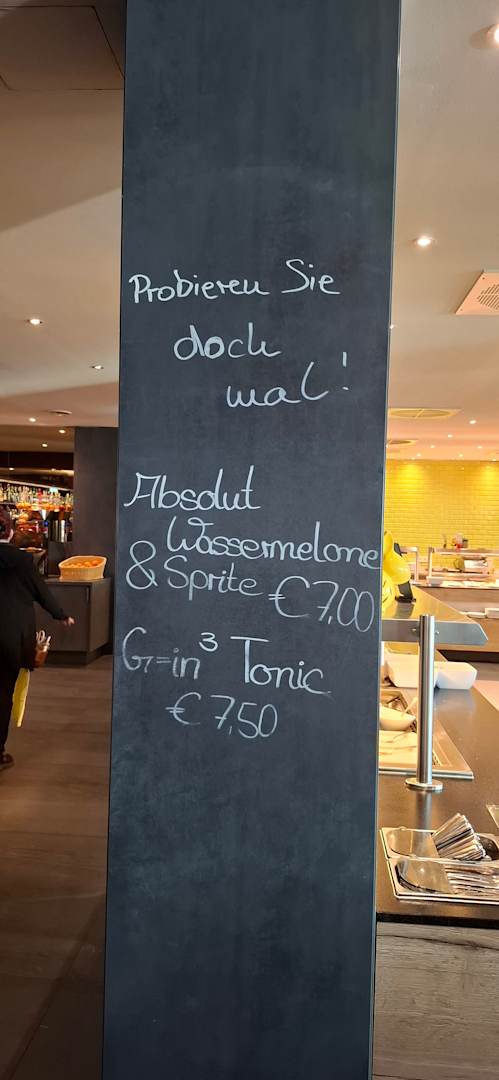 Probieren Sie
doch
mal!
Absolut
Wassermelone
& Sprite € 7,00
G=in³ Tonic
€ 7,50